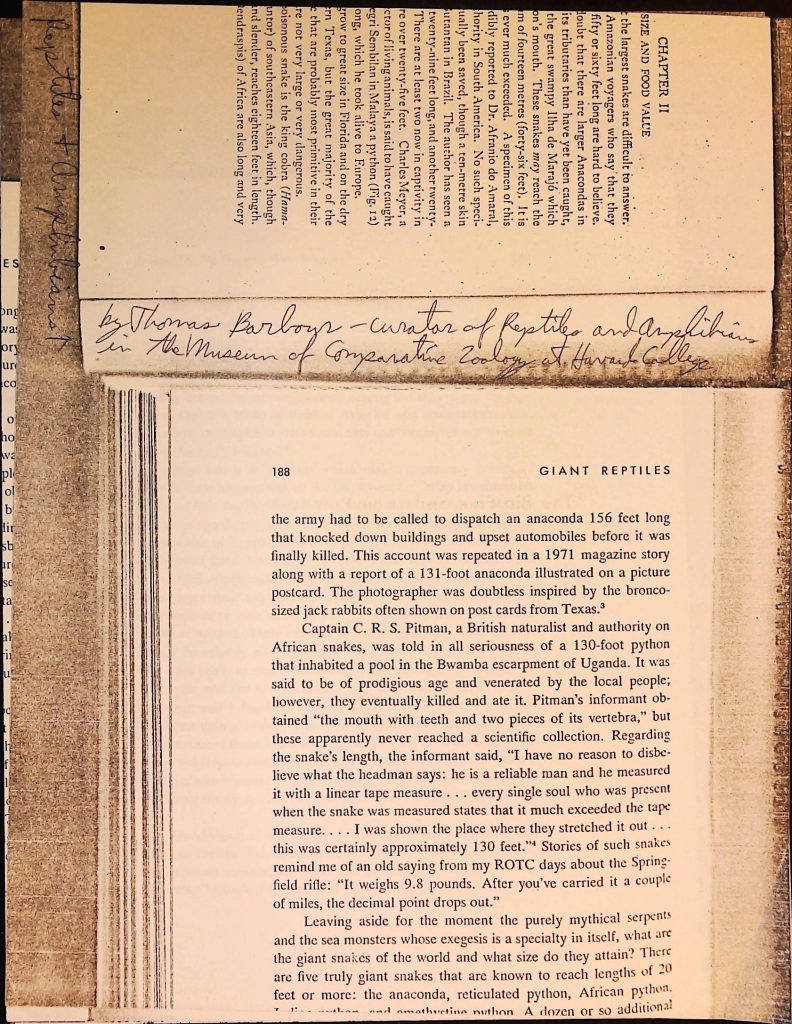 CHAPTER II
SIZE AND FOOD VALUE
the largest snakes are difficult to answer.
Amazonian voyagers who say that they
fifty or sixty feet long are hard to believe.
doubt that there are larger Anacondas in
its tributaries than have yet been caught,
the great swampy Ilha de Marajó which
on's mouth. These snakes may reach the
m of fourteen metres (forty-six feet). It is
ever much exceeded. A specimen of this
dibly reported to Dr. Afranio do Amaral,
hority in South America. No such speci-
ually been saved, though a ten-metre skin
utantan in Brazil. The author has seen a
twenty-nine feet long, and another twenty-
There are at least two now in captivity in
re over twenty-five feet. Charles Meyer, a
ctor of living animals, is said to have caught
egri Sembilan in Malaya a python (Fig. 12)
ong, which he took alive to Europe.
grow to great size in Florida and on the dry
rn Texas, but the great majority of the
e that are probably most primitive in their
re not very large or very dangerous.
oisonous snake is the king cobra (Hama-
untor) of southeastern Asia, which, though
nd slender, reaches eighteen feet in length.
endraspis) of Africa are also long and very
Reptiles + Amphibians
by Thomas Barbour - curator of Reptiles and Amphibians
in the Museum of Comparative Zoology at Harvard College
188 GIANT REPTILES
the army had to be called to dispatch an anaconda 156 feet long
that knocked down buildings and upset automobiles before it was
finally killed. This account was repeated in a 1971 magazine story
along with a report of a 131-foot anaconda illustrated on a picture
postcard. The photographer was doubtless inspired by the bronco-
sized jack rabbits often shown on post cards from Texas.³
Captain C. R. S. Pitman, a British naturalist and authority on
African snakes, was told in all seriousness of a 130-foot python
that inhabited a pool in the Bwamba escarpment of Uganda. It was
said to be of prodigious age and venerated by the local people;
however, they eventually killed and ate it. Pitman's informant ob-
tained “the mouth with teeth and two pieces of its vertebra,” but
these apparently never reached a scientific collection. Regarding
the snake's length, the informant said, “I have no reason to disbe-
lieve what the headman says: he is a reliable man and he measured
it with a linear tape measure . . . every single soul who was present
when the snake was measured states that it much exceeded the tape
measure. . . . I was shown the place where they stretched it out . . .
this was certainly approximately 130 feet.”⁴ Stories of such snakes
remind me of an old saying from my ROTC days about the Spring-
field rifle: “It weighs 9.8 pounds. After you've carried it a couple
of miles, the decimal point drops out.”
Leaving aside for the moment the purely mythical serpents
and the sea monsters whose exegesis is a specialty in itself, what are
the giant snakes of the world and what size do they attain? There
are five truly giant snakes that are known to reach lengths of 20
feet or more: the anaconda, reticulated python, African python,
python and amethystine python. A dozen or so additional